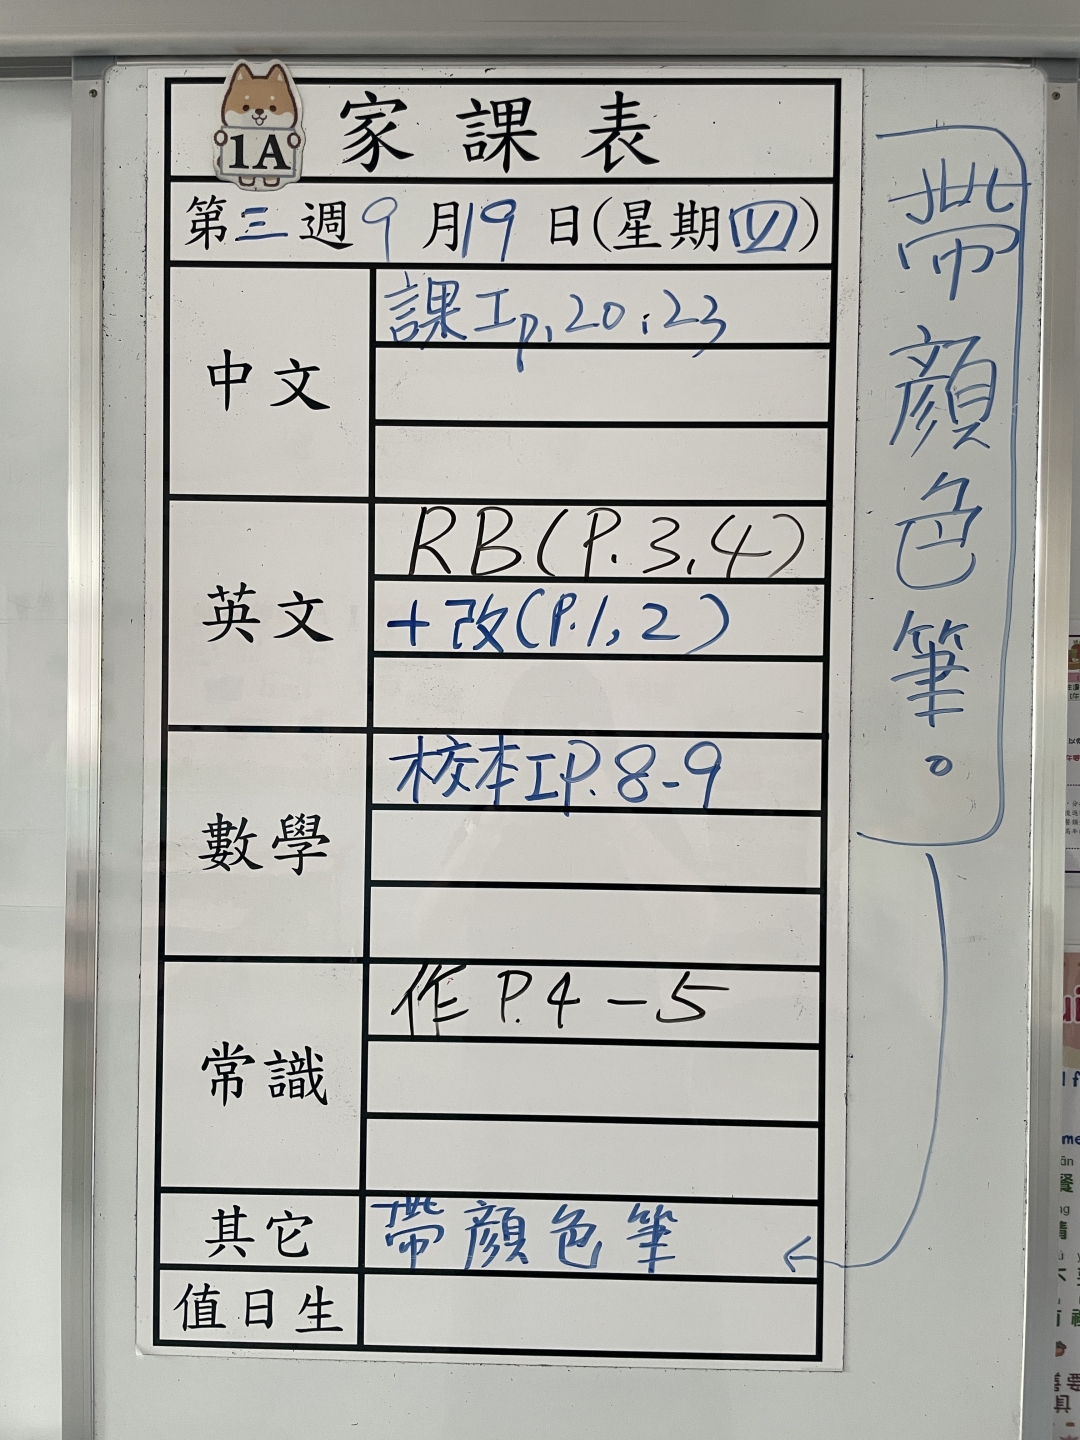 1A
家課表
第三週9月19日(星期四)
中文
課工p.20;23
英文
RB(P.3,4)
+改(P.1,2)
數學
校本工P.8-9
常識
作P.4-5
其它
帶顏色筆
值日生
帶顏色筆。